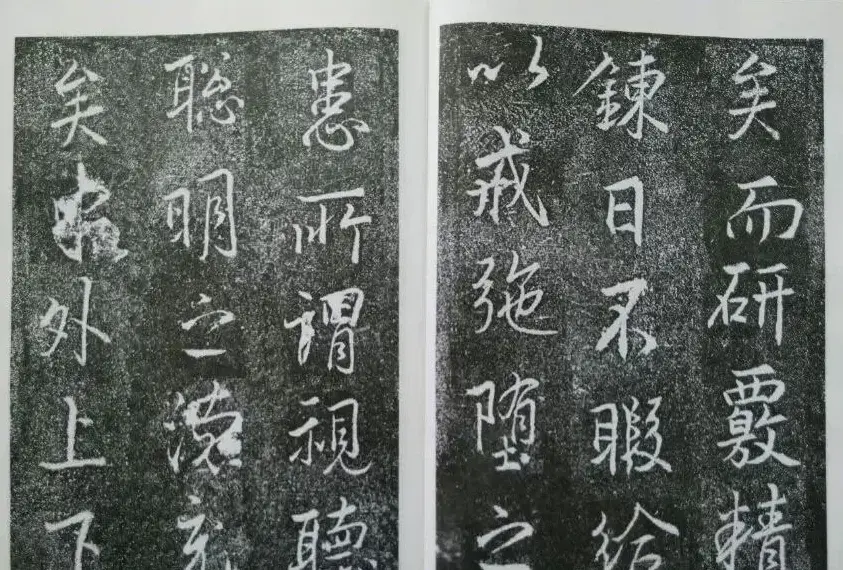 矣而研覈精
鍊日不暇給
以戒弛堕之
患所謂視聽
聰明之
矣外上下